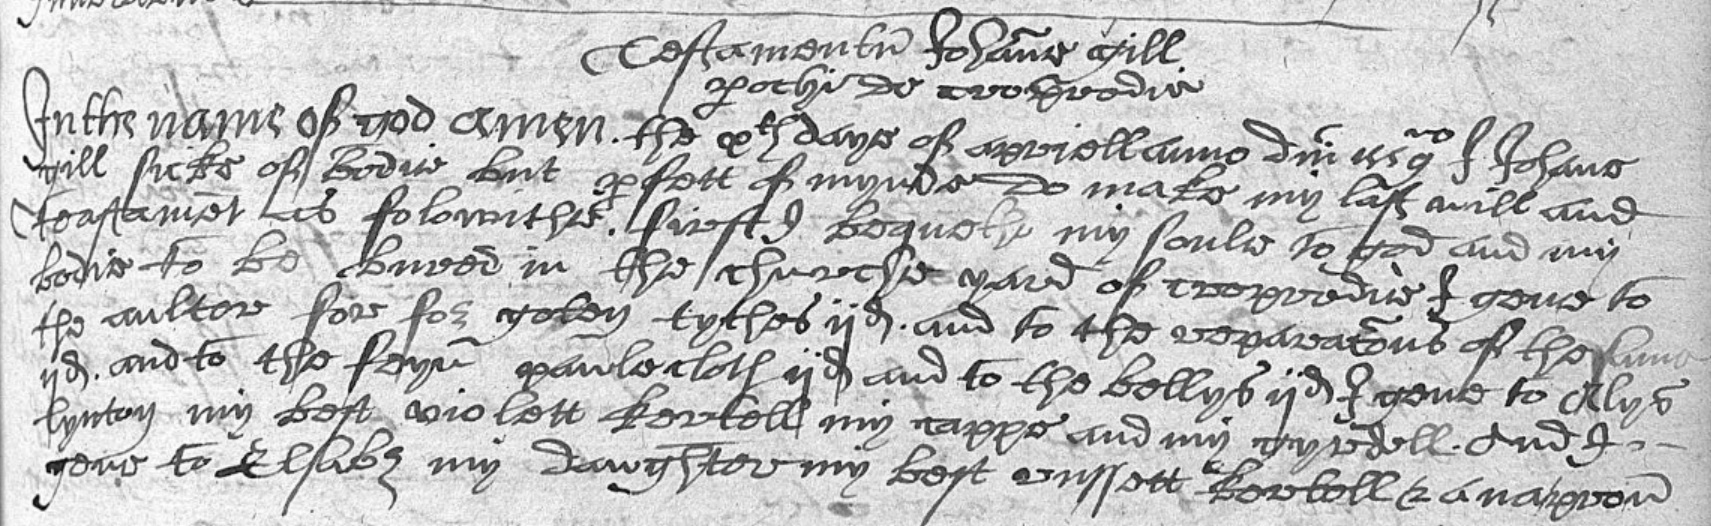 Testamentū Johāne gill
pochi de croxprodie
In the name of god amen. the xth daye of apriell anno dni I Johane
gill sicke of bodie but pfett of mynde do make my last will and
teastamēt as folowithe. first I bequeth my soule to god and my
bodie to be bured in the churche yard of I geve to
the aultor for foȝ goten tythes ijd. and to the reparatōns of the same
ijd. and to the paule cloth ijd and to the bellys ijd I geve to Alys
lynton my best violett kertell my cappe and my gyrdell. And I
geve to Elsabȝ my dawghter my best russett kertell & a naprou